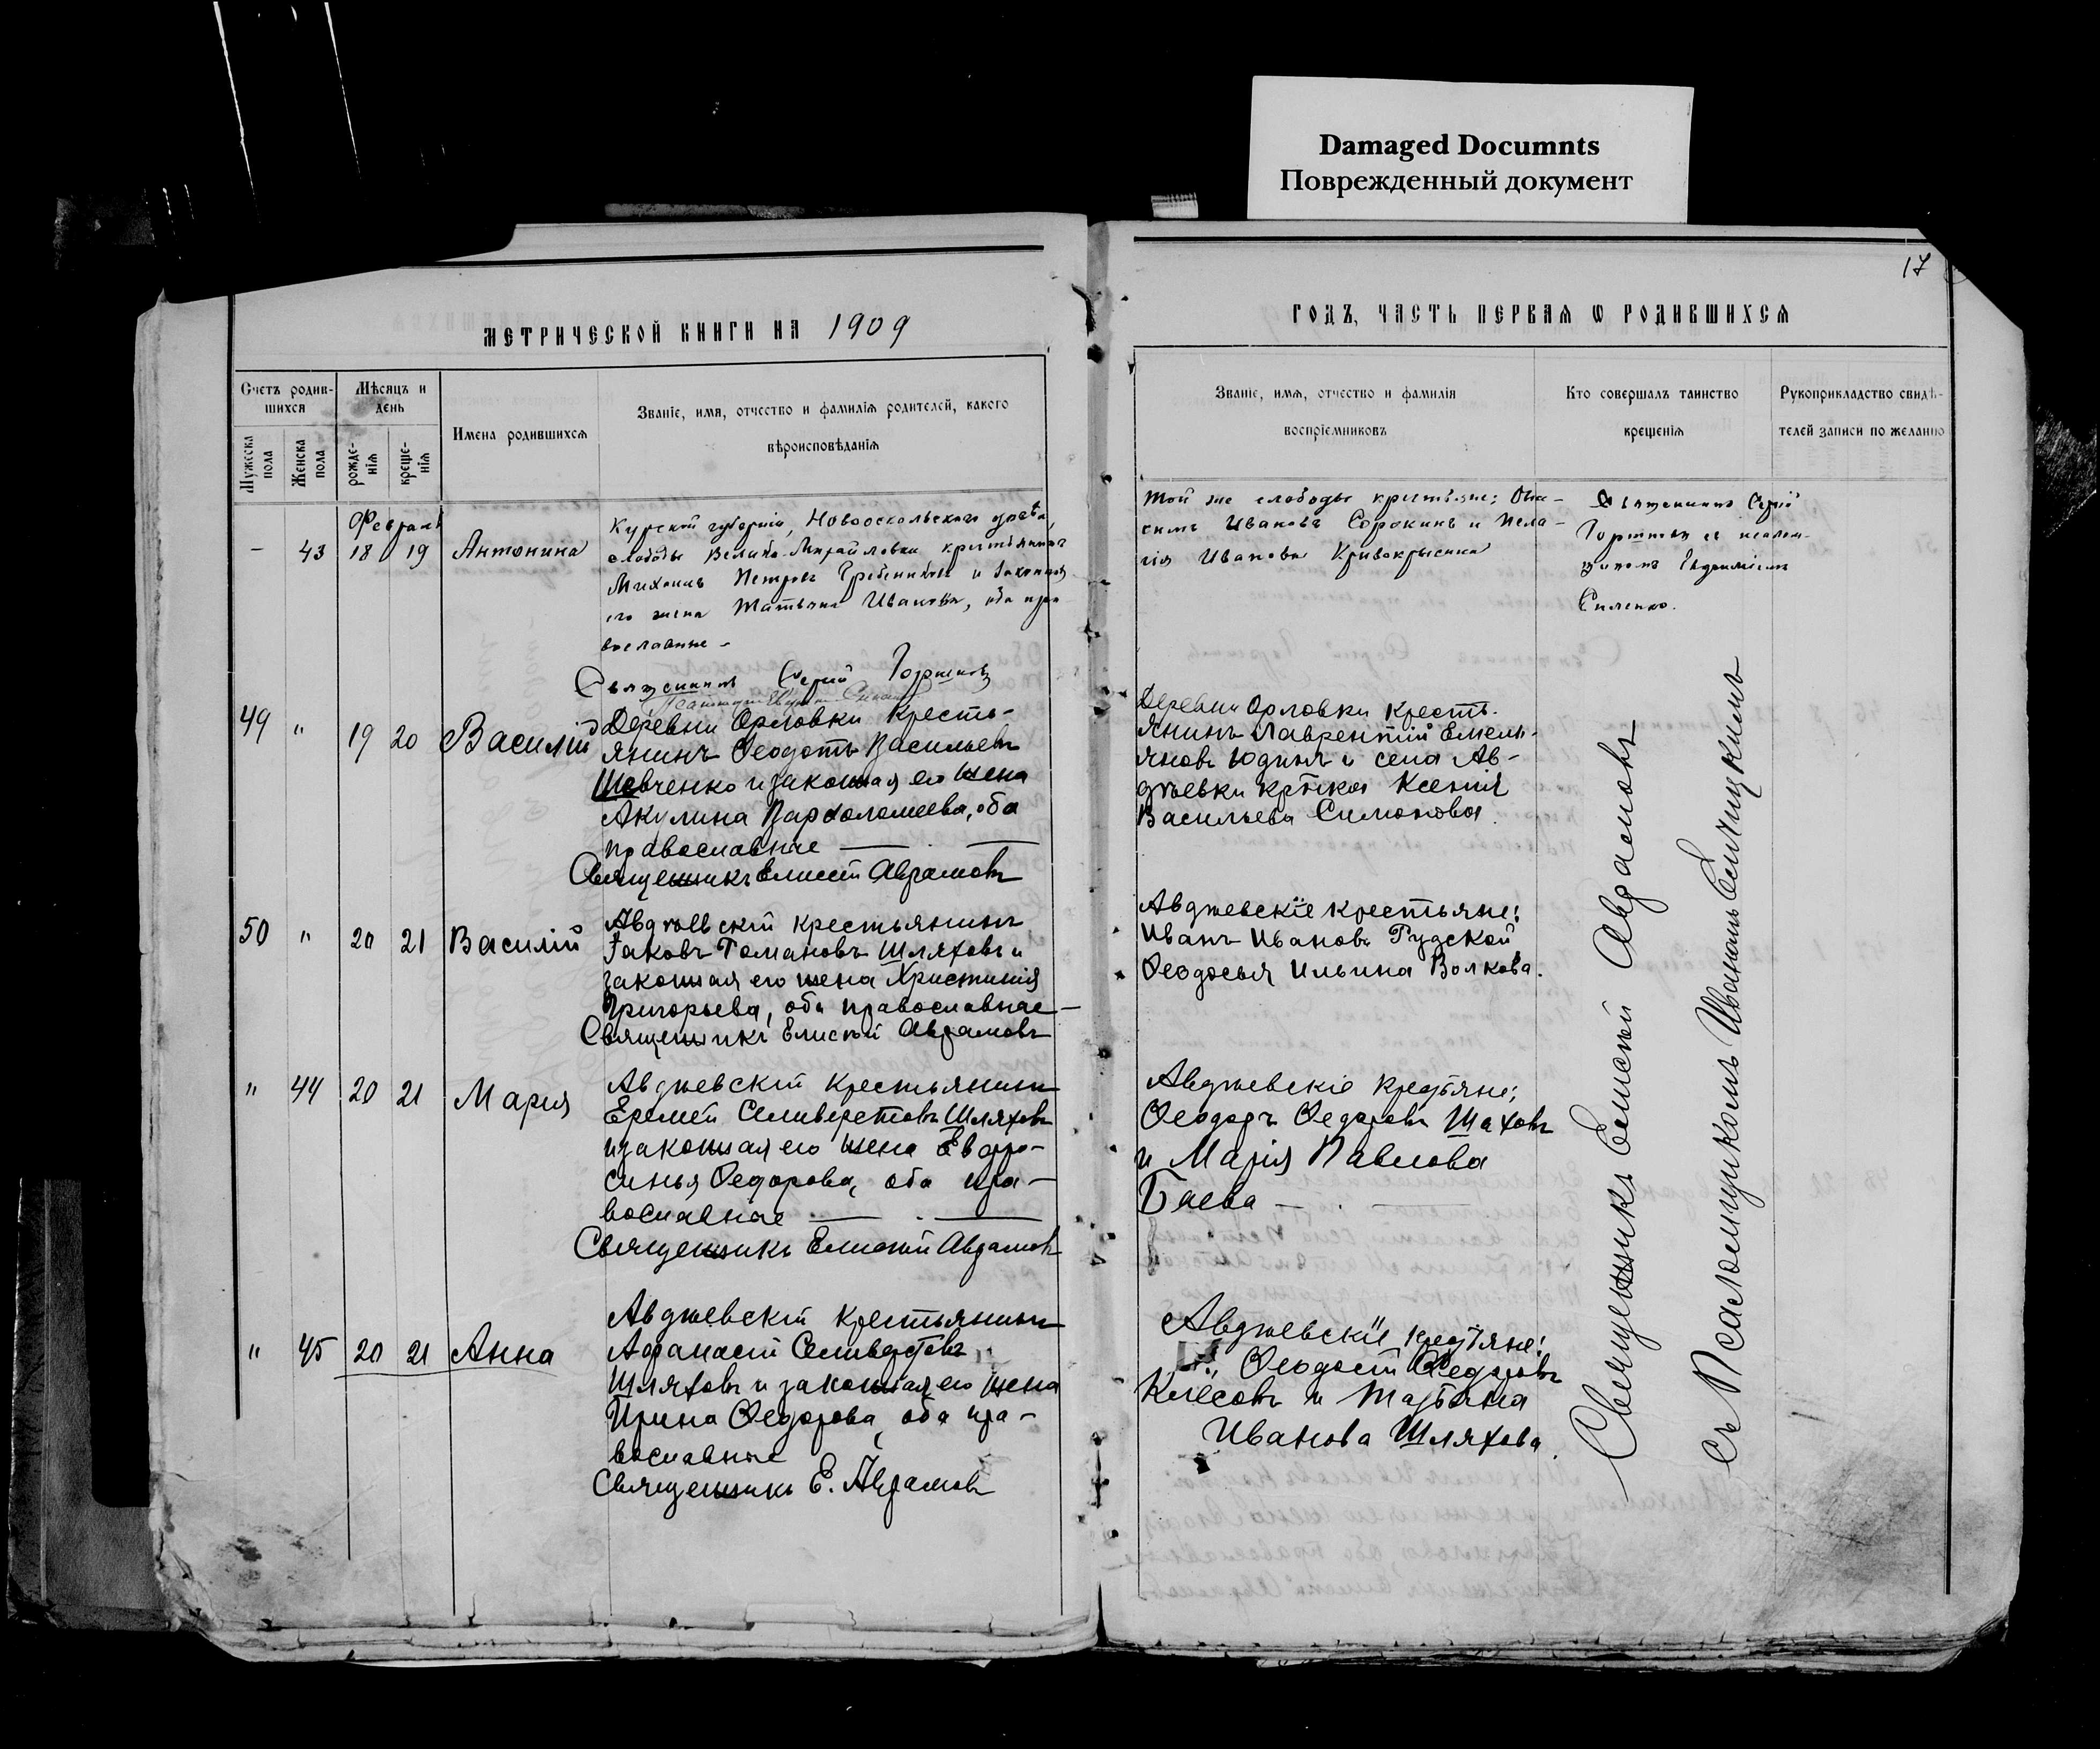 Damaged Documnts
Поврежденный документ
17
МЕТРИЧЕСКОЙ КНИГИ НА 1909
ГОДЪ, ЧАСТЬ ПЕРВАѦ Ѡ РОДИВШИХСѦ
Счетъ родив-
шихся
Мужеска пола
Женска пола
Мѣсяцъ и
день
рожде-
нія
креще-
нія
Имена родившихся
Званіе, имя, отчество и фамилія родителей, какого
вѣроисповѣданія
Званіе, имя, отчество и фамилія
воспріемниковъ
Кто совершалъ таинство
крещенія
Рукоприкладство свидѣ-
телей записи по желанію
Февраль
- 43 18 19 Антонина
Курской губерніи, Новооскольскаго уезда,
слободы Велико-Михайловки крестьянинъ
Михаилъ Петровъ Гребенниковъ и законная
его жена Татьяна Иванова, оба пра
вославные -
Священникъ Сергій Горшковъ
Той же слободы крестьяне:
симъ Ивановъ Сорокинъ и Пела-
гія Иванова Кривокрысина
Священникъ Сергій
съ псалом-
щикомъ
49 " 19 20 Василій
Деревни Орловки кресть-
янинъ Ѳеодотъ Васильевъ
Шевченко и законная его жена
Акулина Варѳоломеева, оба
православные
Священникъ Елисей Аврамовъ
Деревни Орловки кресть-
янинъ Лаврентій Емель-
яновъ и села Ав-
дѣевки кр-ка Ксенія
Васильева Симонова.
50 " 20 21 Василій
Авдѣевскій крестьянинъ
Іаковъ Романовъ Шляховъ и
законная его жена Христинія
Григорьева, оба православные
Священникъ Елисей Аврамовъ
Авдѣевскіе крестьяне:
Иванъ Ивановъ Рудской
Ѳеодосья Ильина Волкова.
" 44 20 21 Марія
Авдѣевскій крестьянинъ
Еремей Селиверстовъ Шляховъ
и законная его жена Евфро-
синья Ѳедорова, оба пра-
вославные
Священникъ Елисей Аврамовъ
Авдѣевскіе крестьяне;
Ѳеодоръ Ѳедоровъ Шаховъ
и Марія Павлова
Баева
" 45 20 21 Анна
Авдѣевскій крестьянинъ
Аѳанасій Селиверстовъ
Шляховъ и законная его жена
Ирина Ѳедорова, оба пра-
вославные
Священникъ Е. Аврамовъ
Авдѣевскіе крестьяне:
Ѳеодосій Ѳедоровъ
и Татьяна
Иванова Шляхова.
Священникъ Елисей Аврамовъ
съ Псаломщикомъ Иваномъ